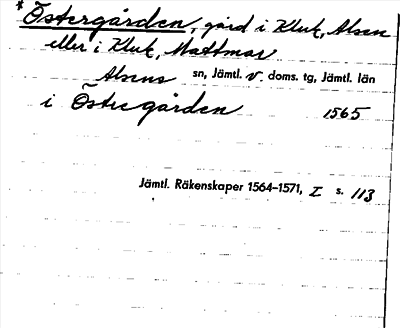 * Östergården, gård i Kluk, Alsen
eller i Kluk, Mattmar
Alsens sn, Jämtl. v. doms. tg, Jämtl. län
i Östergården 1565
Jämtl. Räkenskaper 1564–1571, I s. 113